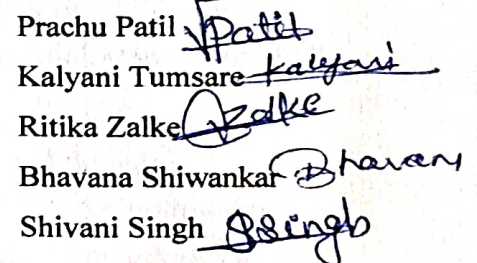 Prachu Patil Patil
Kalyani Tumsare Kalyani
Ritika Zalke Zalke
Bhavana Shiwankar Bhavana
Shivani Singh SSingh